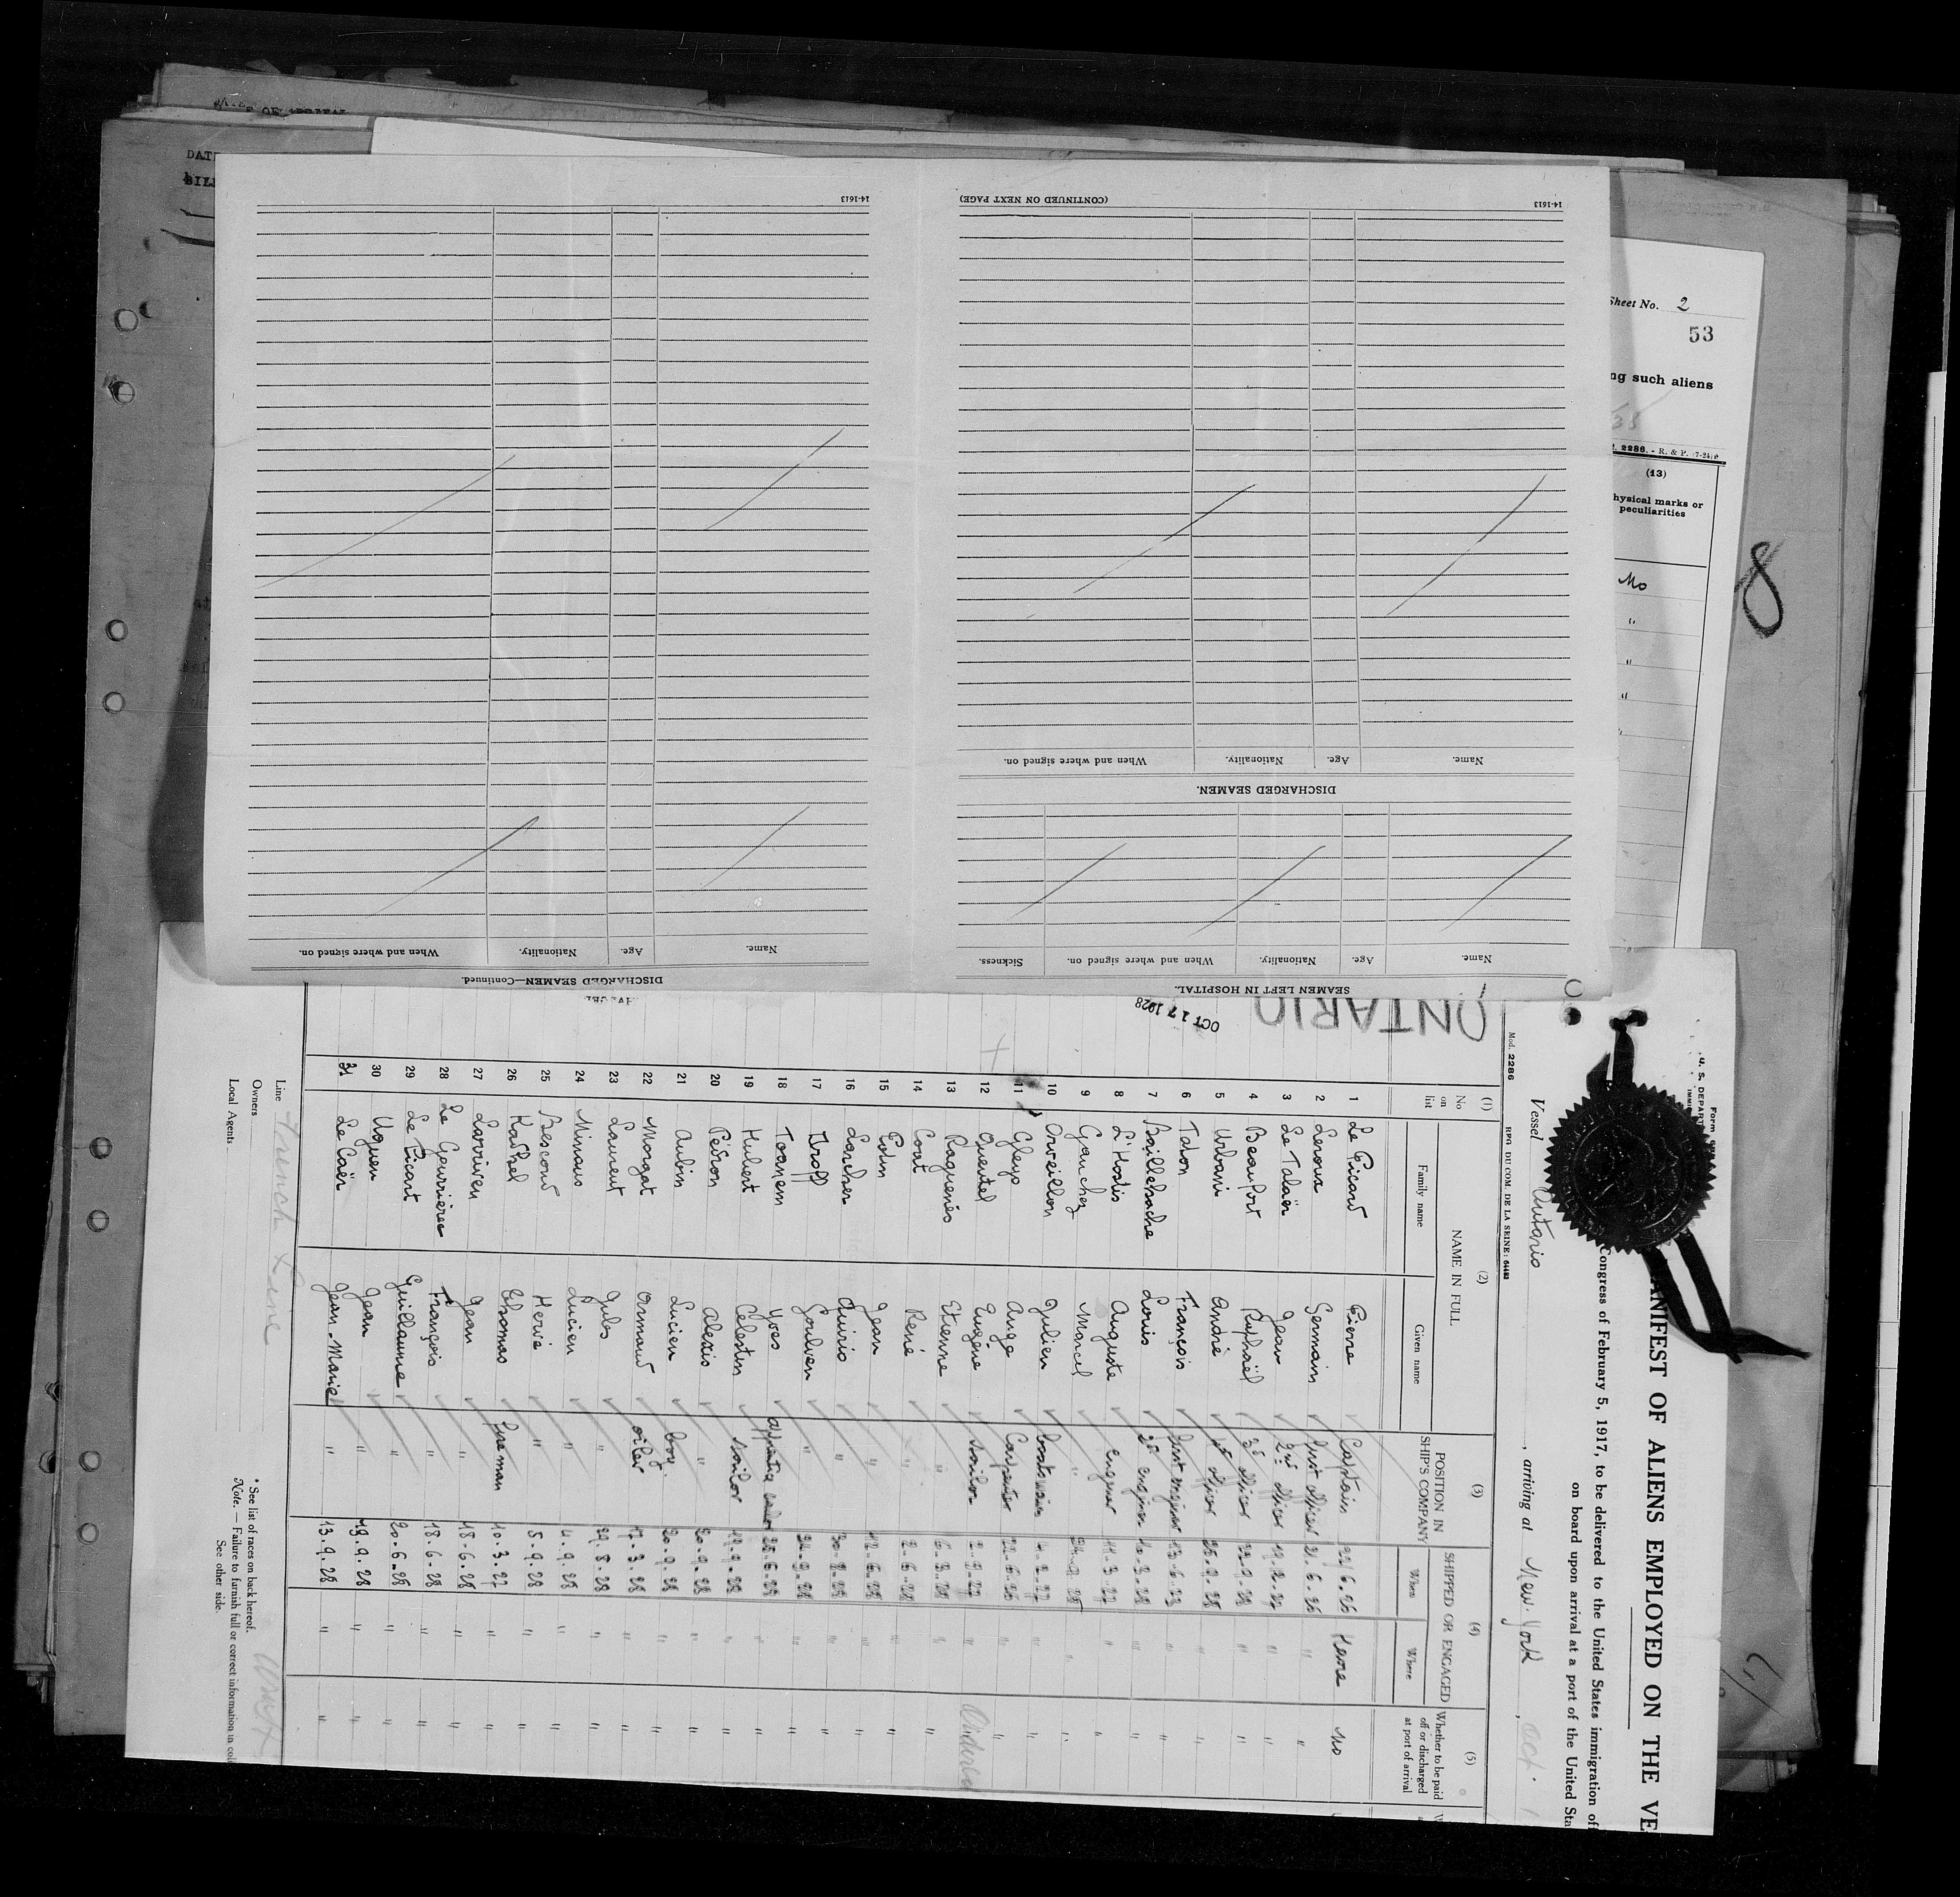 DATE OF ARRIVAL
Sheet No. 2
53
ng such aliens
2286. - R. & P. 7-24
(13)
hysical marks or
peculiarities
No
"
"
"
8
(CONTINUED ON NEXT PAGE)
14-1613
DISCHARGED SEAMEN.
Name. Age. Nationality. When and where signed on.
SEAMEN LEFT IN HOSPITAL.
Name. Age. Nationality. When and where signed on. Sickness.
14-1613
DISCHARGED SEAMEN—Continued.
Name. Age. Nationality. When and where signed on.
ONTARIO
OCT 17 1928
U. S. DEPAR
Form
ANIFEST OF ALIENS EMPLOYED ON THE VE
Congress of February 5, 1917, to be delivered to the United States immigration of
on board upon arrival at a port of the United Sta
Vessel Ontario, arriving at New-York, Oct.
Mod. 2286
REG DU COM. DE LA SEINE:
(1) (2) (3) (4) (5)
No on list
NAME IN FULL
Family name Given name
POSITION IN SHIP'S COMPANY
SHIPPED OR ENGAGED
When Where
Whether to be paid off or discharged at port of arrival
1 Le Picard Pierre Captain 22/6.26 Havre No
2 Leroux Germain first officer 21.6.26 " "
3 Le Talaër Jean 2nd officer 19.2.27 " "
4 Beaufort Raphaël 3d officer 22.9.28 " "
5 Urbani André officer 25.9.28 " "
6 Talon François first engineer 13.6.23 " "
7 Baillehache Louis 2d engineer 10.3.28 " "
8 L'Hostis Auguste engineer 11.3.27 " "
9 Gauchez Marcel " 24.9.28 " "
10 Orveillon Julien boatswain 4.2.27 " "
11 Gleyo Ange Carpenter 22.6.26 " "
12 Quentel Eugène sailor 2.9.27 "
13 Raguenès Etienne " 6.3.28 "
14 Coat René " 2.6.28 " "
15 Colin Jean " 12.6.28 " "
16 Lascher Quirio " 30.8.28 " "
17 Troff Goulven " 24.9.28 " "
18 Toanem Yves apprentice sailor 25.6.28 " "
19 Hubert Célestin sailor 19.9.28 " "
20 Péron Alexis " 20.9.28 " "
21 Aubin Lucien boy 20.9.28 " "
22 Morgat Armand oiler 17.3.28 " "
23 Laurent Jules " 29.8.28 " "
24 Minous Lucien " 4.9.28 " "
25 Bescond Hervé " 5.9.28 " "
26 Thomas fireman 10.3.27 " "
27 Lorvieu Jean " 18.6.28 " "
28 Le Gourrièrec François " 18.6.28 " "
29 Le Picart Guillaume " 20.6.28 " "
30 Uguen Jean " 19.9.28 " "
31 Le Caër Jean-Marie " 13.9.28 " "
Line French Line
Owners
Local Agents
* See list of races on back hereof.
Note. — Failure to furnish full or correct information in col
See other side.